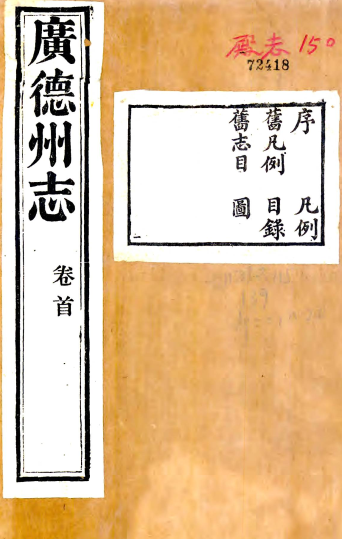 廣德州志
卷首
序 凡例
舊凡例 目錄
舊志目 圖
150
72418